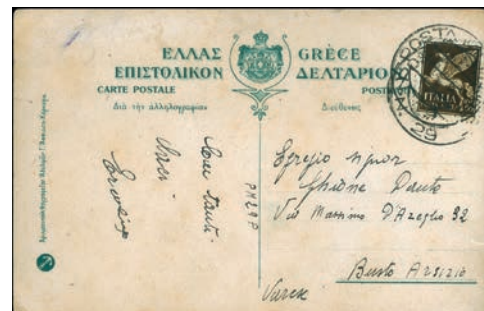 ΕΛΛΑΣ GRÈCE
ΕΠΙΣΤΟΛΙΚΟΝ ΔΕΛΤΑΡΙΟΝ
CARTE POSTALE POST
Διὰ τὴν ἀλληλογραφίαν Διεύθυνσις
POSTA
ITALIA
29
Egregio Signor
Ghione Dante
Via Massimo D'Azeglio 32
Busto Arsizio
Varese
tanti
baci
PM29P